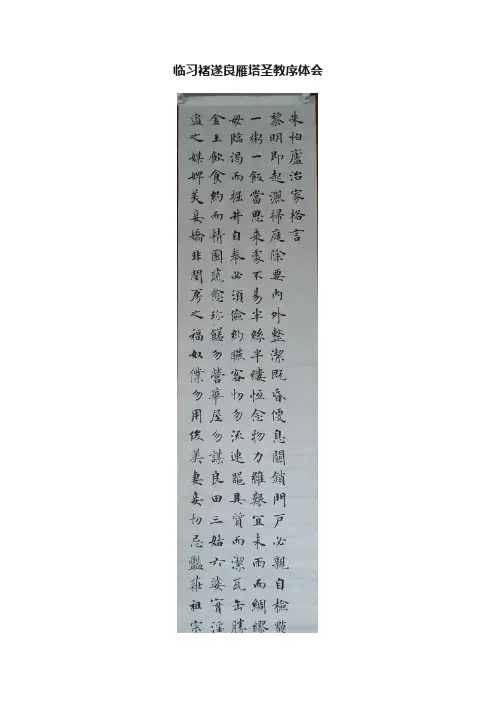 临习褚遂良雁塔圣教序体会
朱柏廬治家格言
黎明即起灑掃庭除要內外整潔既昏便息關鎖門戶必親自檢點
一粥一飯當思來處不易半絲半縷恆念物力維艱宜未雨而綢繆
毋臨渴而掘井自奉必須儉約讌客切勿流連器具質而潔瓦缶勝
金玉飲食約而精園蔬愈珍饈勿營華屋勿謀良田三姑六婆實淫
盜之媒婢美妾嬌非閨房之福奴僕勿用俊美妻妾切忌豔莊祖宗